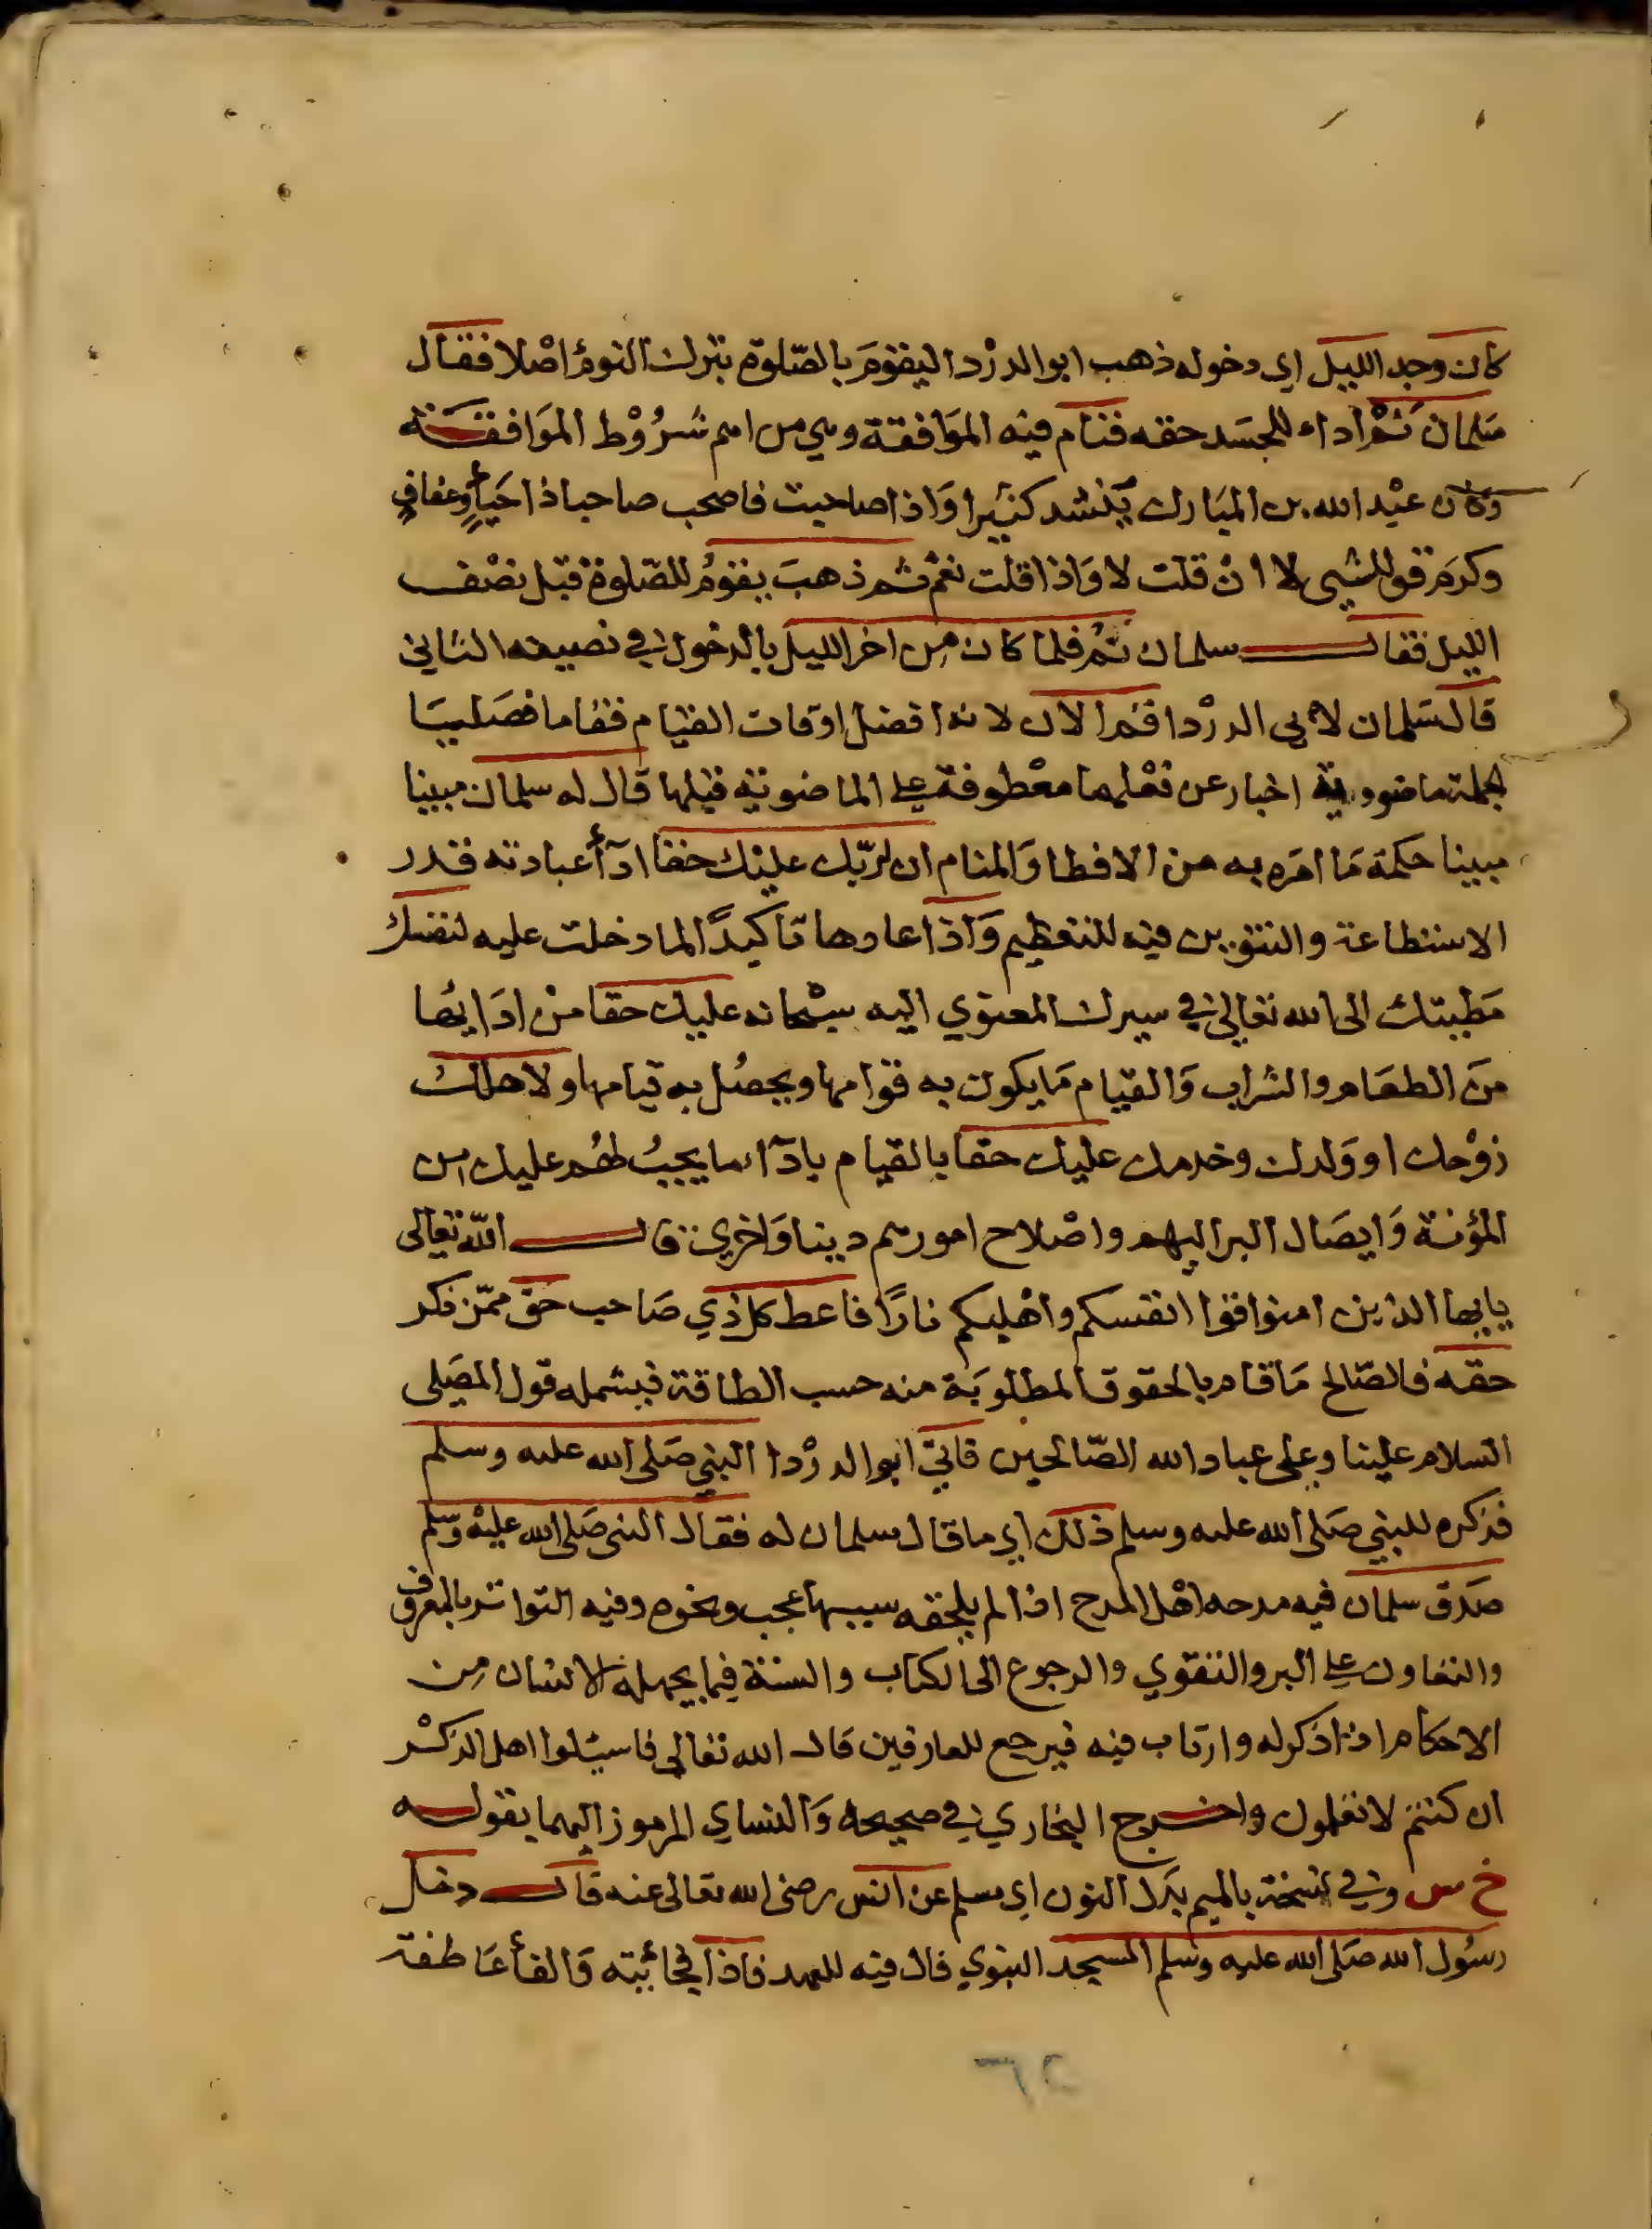 كان وجد الليل اي دخوله ذهب ابو الدرْدا ليقومَ بالصّلوة بترك النوم اصْلا فقال
سَلمان نَمْ اداء للجسَد حقه فنام فيه الموَافقة وهي من اهم شرُوْط الموَافقة
وكان عبْد الله بن المبَارك يُنشد كثيرا وَاذا صاحبت فاصحب صاحبا ذا حَياءٍ وعفافٍ
وكرَم قوله للشيى لا انْ قلت لا وَاذا قلت نعمْ ثم ذهبَ يقومُ للصّلوة قبل نصْف
الليل فقال سلمان نمْ فلما كان مِن اخر الليل بالدخول في نصيفه الثاني
قال سَلمان لأبي الدرْدا قم الآن لانه افضل اوقات القيام فقاما فصَليَا
جملة ماضووية اخبار عن فعْلهما معْطوفة على الماضوية قبلها قال له سلمان مبينا
مبينا حكمة مَا امَره به من الافطا وَالمنام ان لربّك عليْك حقا ادآأ عبادته قدر
الاستطاعة والتنوين فيه للتعْظيم وَاذا عادها تاكيدًا لما دخلت عليه لنفسك
مَطيتك الى الله تعالى في سيرك المعنوي اليه سبْحانه عليك حقا منْ ادَايهَا
منَ الطعَام والشراب وَالقيام مَا يكون به قوامها ويحصُل به قيامها ولاهلك
زوْجك او وَلدك وخدمك عليك حقا بالقيام بادآء ما يجبُ لهُم عليك من
المؤنة وَايصَال البر اليهم واصْلاح امورهم دينا وَاخري قال الله تعالى
يايها الذين امنوا قوا انفسكم واهْليكم نارًا فاعط كل ذي صَاحب حق ممّن ذكر
حقه فالصّالح مَا قام بالحقوق المطلوبَة منه حسب الطاقة فيشمله قول المصَلى
السلام علينا وعلى عباد الله الصّالحين فاتى ابو الدرْدا النبي صَلى الله عليه وسلم
فذكره للنبي صَلى الله عليه وسلم ذلك اي ما قال سلمان له فقال النبى صَلى الله عليْه وسَلم
صَدق سلمان فيه مدحه اهْل المدح اذا لم يلحقه سببها عجب ونحوه وفيه التواتر بالمعروف
والتعاون على البر والتقوي والرجوع الى الكتاب والسنة فيما يجهله الانسان مِن
الاحكام اذا ذكر له وارتاب فيه فيرجع للعارفين قال الله تعالى فاسيَلوا اهل الذكْر
ان كنتم لا تعلمون واخرج البخاري في صحيحه وَالنساي المرموز اليهما بقوله
خ س وفي نسخة بالميم بدَل النون اي مسلم عن انس رضى الله تعالى عنه قال دخل
رسُول الله صَلى الله عليه وسَلم المسجد النبوي فال فيه للعهد فاذا فجائيته وَالفأ عَاطفة